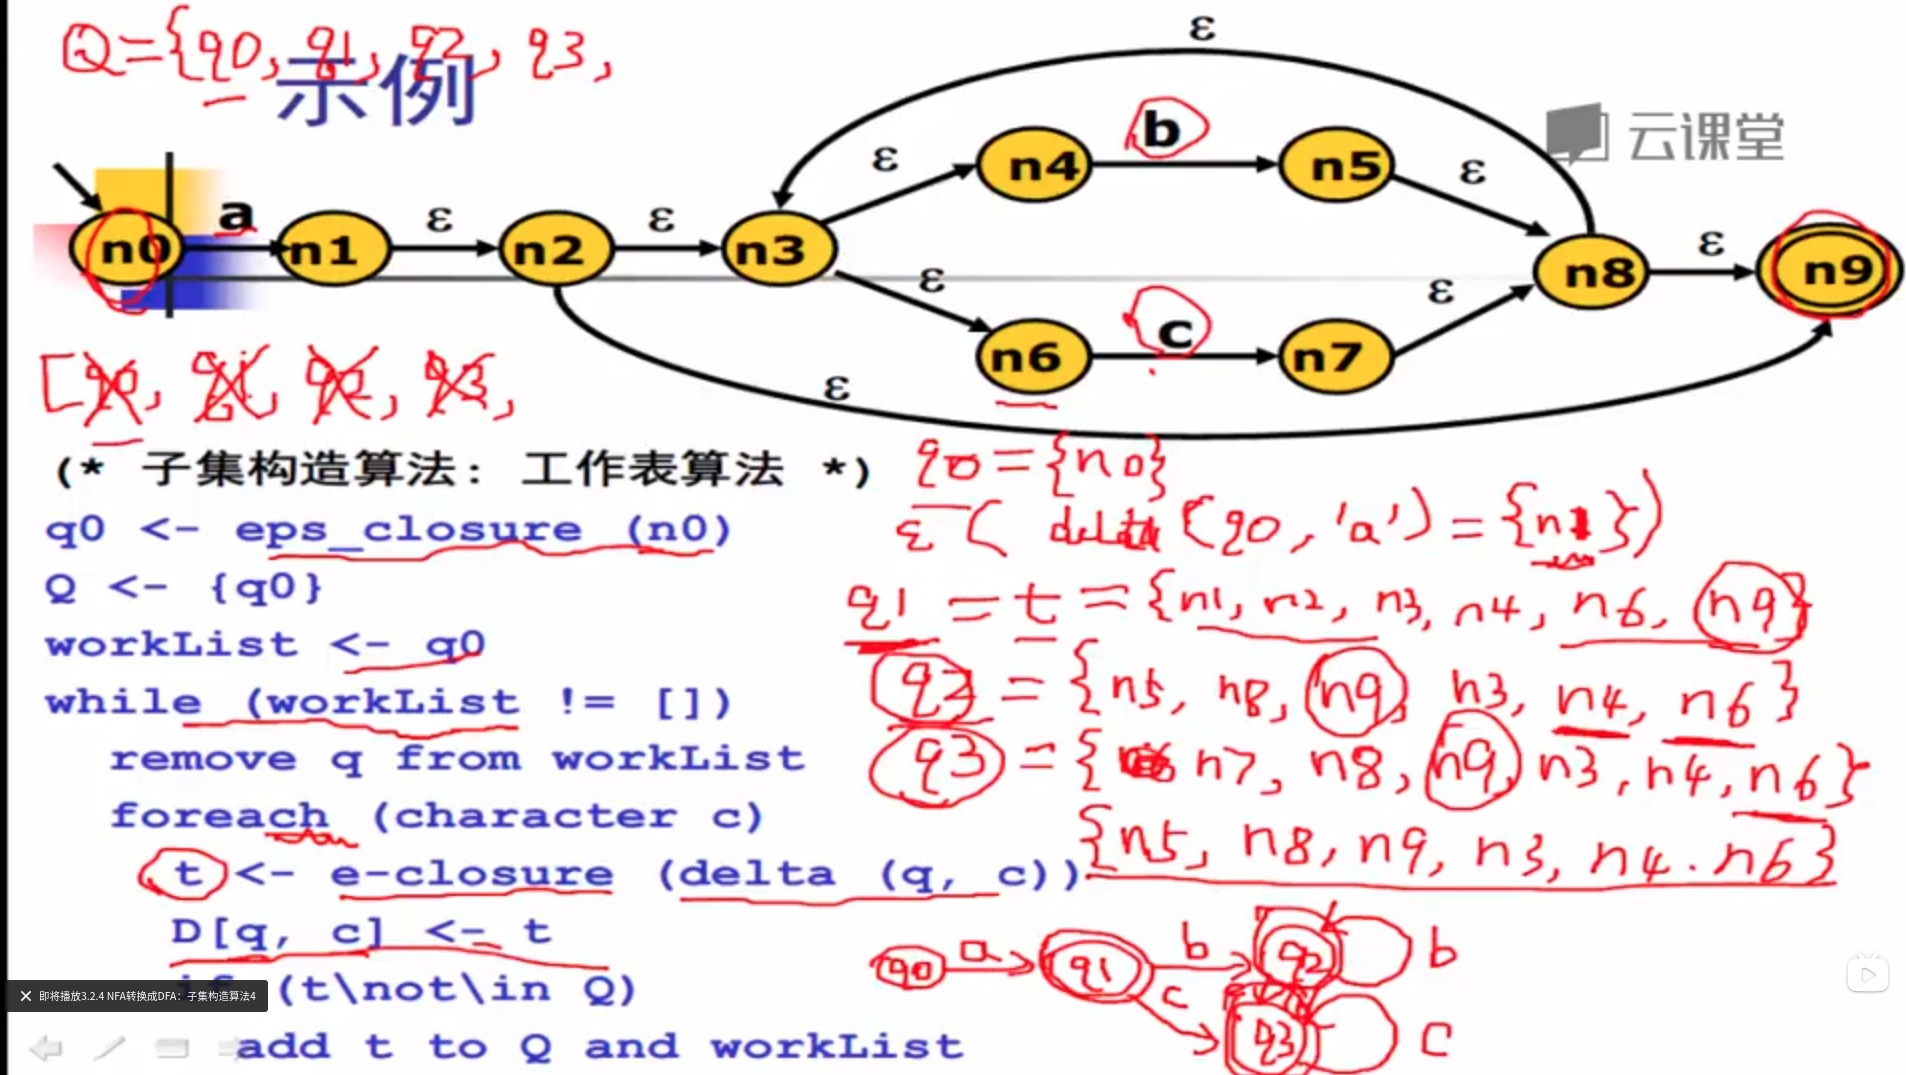 Q={q0, q1, q2, q3,
示例
云课堂
ε
ε b ε
n4 n5
a ε ε
n0 n1 n2 n3 n8 ε n9
ε c ε
n6 n7
ε
[q0, q1, q2, q3,
(* 子集构造算法: 工作表算法 *)
q0 <- eps_closure (n0)
Q <- {q0}
workList <- q0
while (workList != [])
remove q from workList
foreach (character c)
t <- e-closure (delta (q, c))
D[q, c] <- t
if (t\not\in Q)
add t to Q and workList
q0 = {n0}
ε ( delta (q0, 'a') = {n1})
q1 = t = {n1, n2, n3, n4, n6, n9}
q2 = {n5, n8, n9, n3, n4, n6}
q3 = { n7, n8, n9, n3, n4, n6}
{n5, n8, n9, n3, n4. n6}
q0 a q1 b q2 b
c q3 c
即将播放3.2.4 NFA转换成DFA: 子集构造算法4